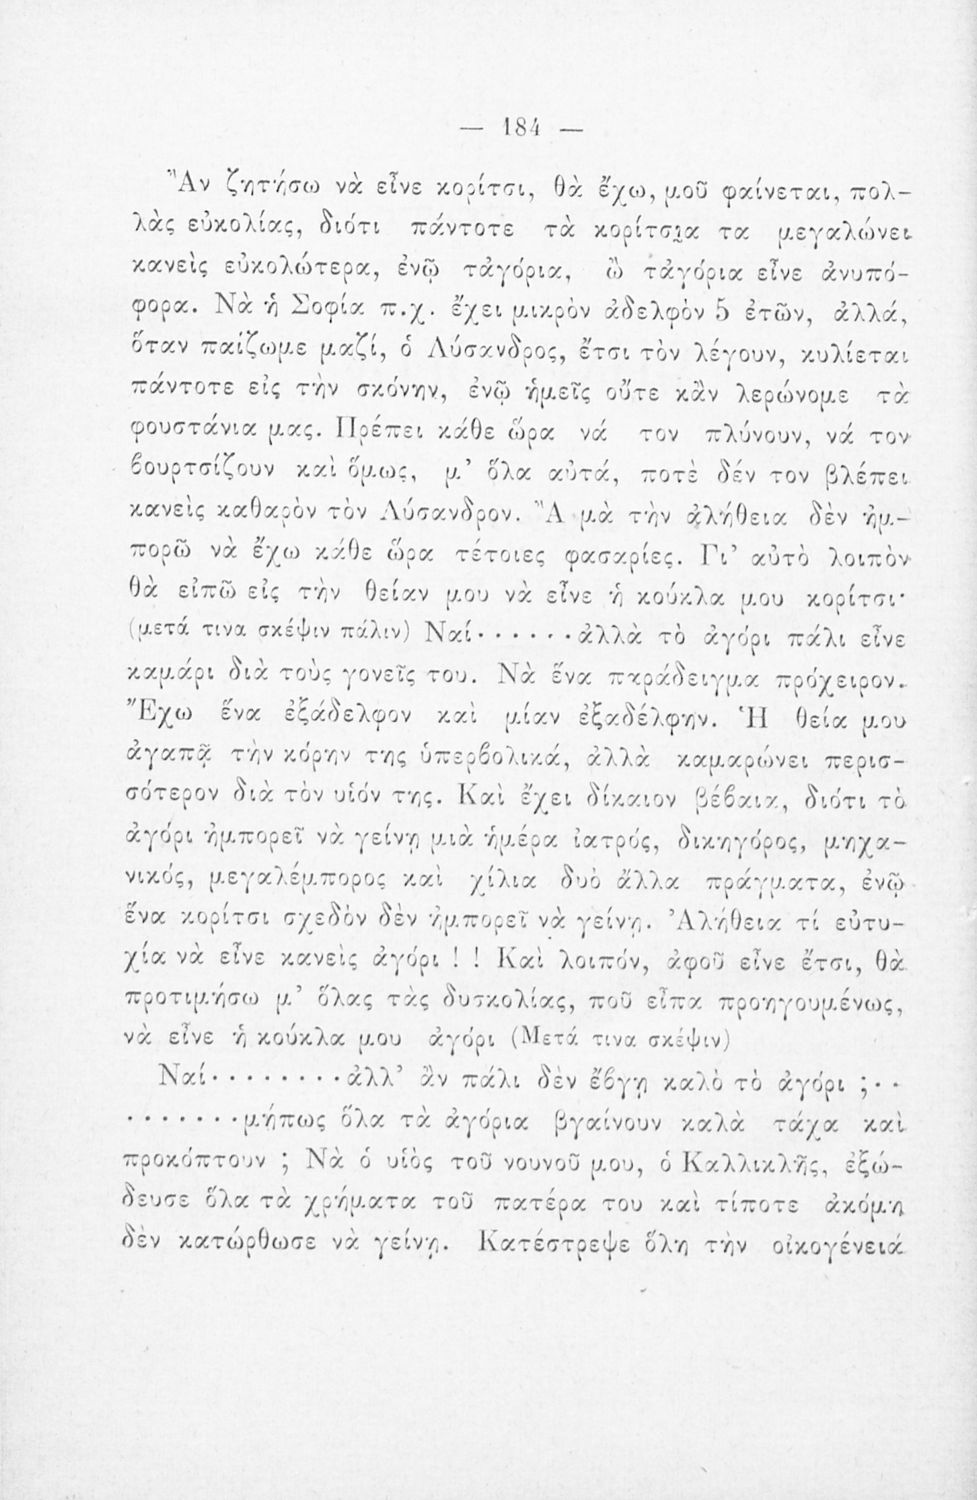 — 184 —
Ἂν ζητήσω νὰ εἶνε κορίτσι, θὰ ἔχω, μοῦ φαίνεται, πολ-
λὰς εὐκολίας, διότι πάντοτε τὰ κορίτσια τα μεγαλώνει
κανεὶς εὐκολώτερα, ἐνῷ τἀγόρια, ὢ τἀγόρια εἶνε ἀνυπό-
φορα. Νὰ ἡ Σοφία π.χ. ἔχει μικρὸν ἀδελφὸν 5 ἐτῶν, ἀλλά,
ὅταν παίζωμε μαζί, ὁ Λύσανδρος, ἔτσι τὸν λέγουν, κυλίεται
πάντοτε εἰς τὴν σκόνην, ἐνῷ ἡμεῖς οὔτε κἂν λερώνομε τὰ
φουστάνια μας. Πρέπει κάθε ὥρα νά τον πλύνουν, νά τον
βουρτσίζουν καὶ ὅμως, μ' ὅλα αὐτά, ποτὲ δέν τον βλέπει
κανεὶς καθαρὸν τὸν Λύσανδρον. Ἂ μὰ τὴν ἀλήθεια δὲν ἠμ-
πορῶ νὰ ἔχω κάθε ὥρα τέτοιες φασαρίες. Γι' αὐτὸ λοιπὸν
θὰ εἰπῶ εἰς τὴν θείαν μου νὰ εἶνε ἡ κούκλα μου κορίτσι·
(μετά τινα σκέψιν πάλιν) Ναί······ἀλλὰ τὸ ἀγόρι πάλι εἶνε
καμάρι διὰ τοὺς γονεῖς του. Νὰ ἕνα παράδειγμα πρόχειρον.
Ἔχω ἕνα ἐξάδελφον καὶ μίαν ἐξαδέλφην. Ἡ θεία μου
ἀγαπᾷ τὴν κόρην της ὑπερβολικά, ἀλλὰ καμαρώνει περισ-
σότερον διὰ τὸν υἱόν της. Καὶ ἔχει δίκαιον βέβαια, διότι τὸ
ἀγόρι ἠμπορεῖ νὰ γείνῃ μιὰ ἡμέρα ἰατρός, δικηγόρος, μηχα-
νικός, μεγαλέμπορος καὶ χίλια δυὸ ἄλλα πράγματα, ἐνῷ
ἕνα κορίτσι σχεδὸν δὲν ἠμπορεῖ νὰ γείνῃ. Ἀλήθεια τί εὐτυ-
χία νὰ εἶνε κανεὶς ἀγόρι ! ! Καὶ λοιπόν, ἀφοῦ εἶνε ἔτσι, θὰ
προτιμήσω μ' ὅλας τὰς δυσκολίας, ποῦ εἶπα προηγουμένως,
νὰ εἶνε ἡ κούκλα μου ἀγόρι (Μετά τινα σκέψιν)
Ναί········ἀλλ' ἂν πάλι δὲν ἔβγῃ καλὸ τὸ ἀγόρι ;··
·······μήπως ὅλα τὰ ἀγόρια βγαίνουν καλὰ τάχα καὶ
προκόπτουν ; Νὰ ὁ υἱὸς τοῦ νουνοῦ μου, ὁ Καλλικλῆς, ἐξώ-
δευσε ὅλα τὰ χρήματα τοῦ πατέρα του καὶ τίποτε ἀκόμη
δὲν κατώρθωσε νὰ γείνῃ. Κατέστρεψε ὅλη τὴν οἰκογένειά